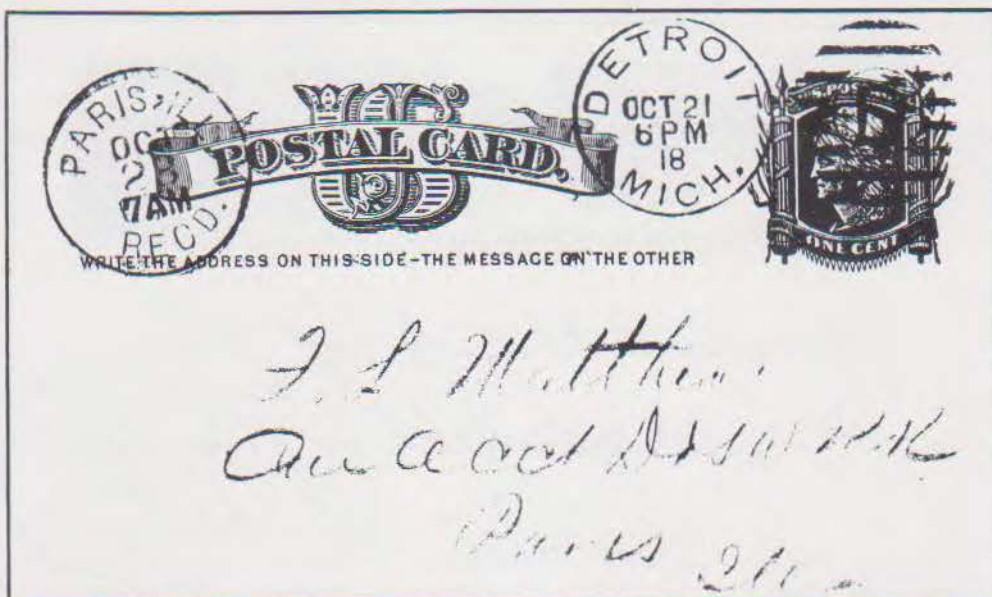 PARIS, ILL.
OCT
23
7AM
REC'D.
US
POSTAL CARD.
DETROIT
OCT 21
6 PM
18
MICH.
U.S. POSTAGE
ONE CENT
WRITE THE ADDRESS ON THIS SIDE-THE MESSAGE ON THE OTHER
F. L. Matthews
Acct
Paris Ills